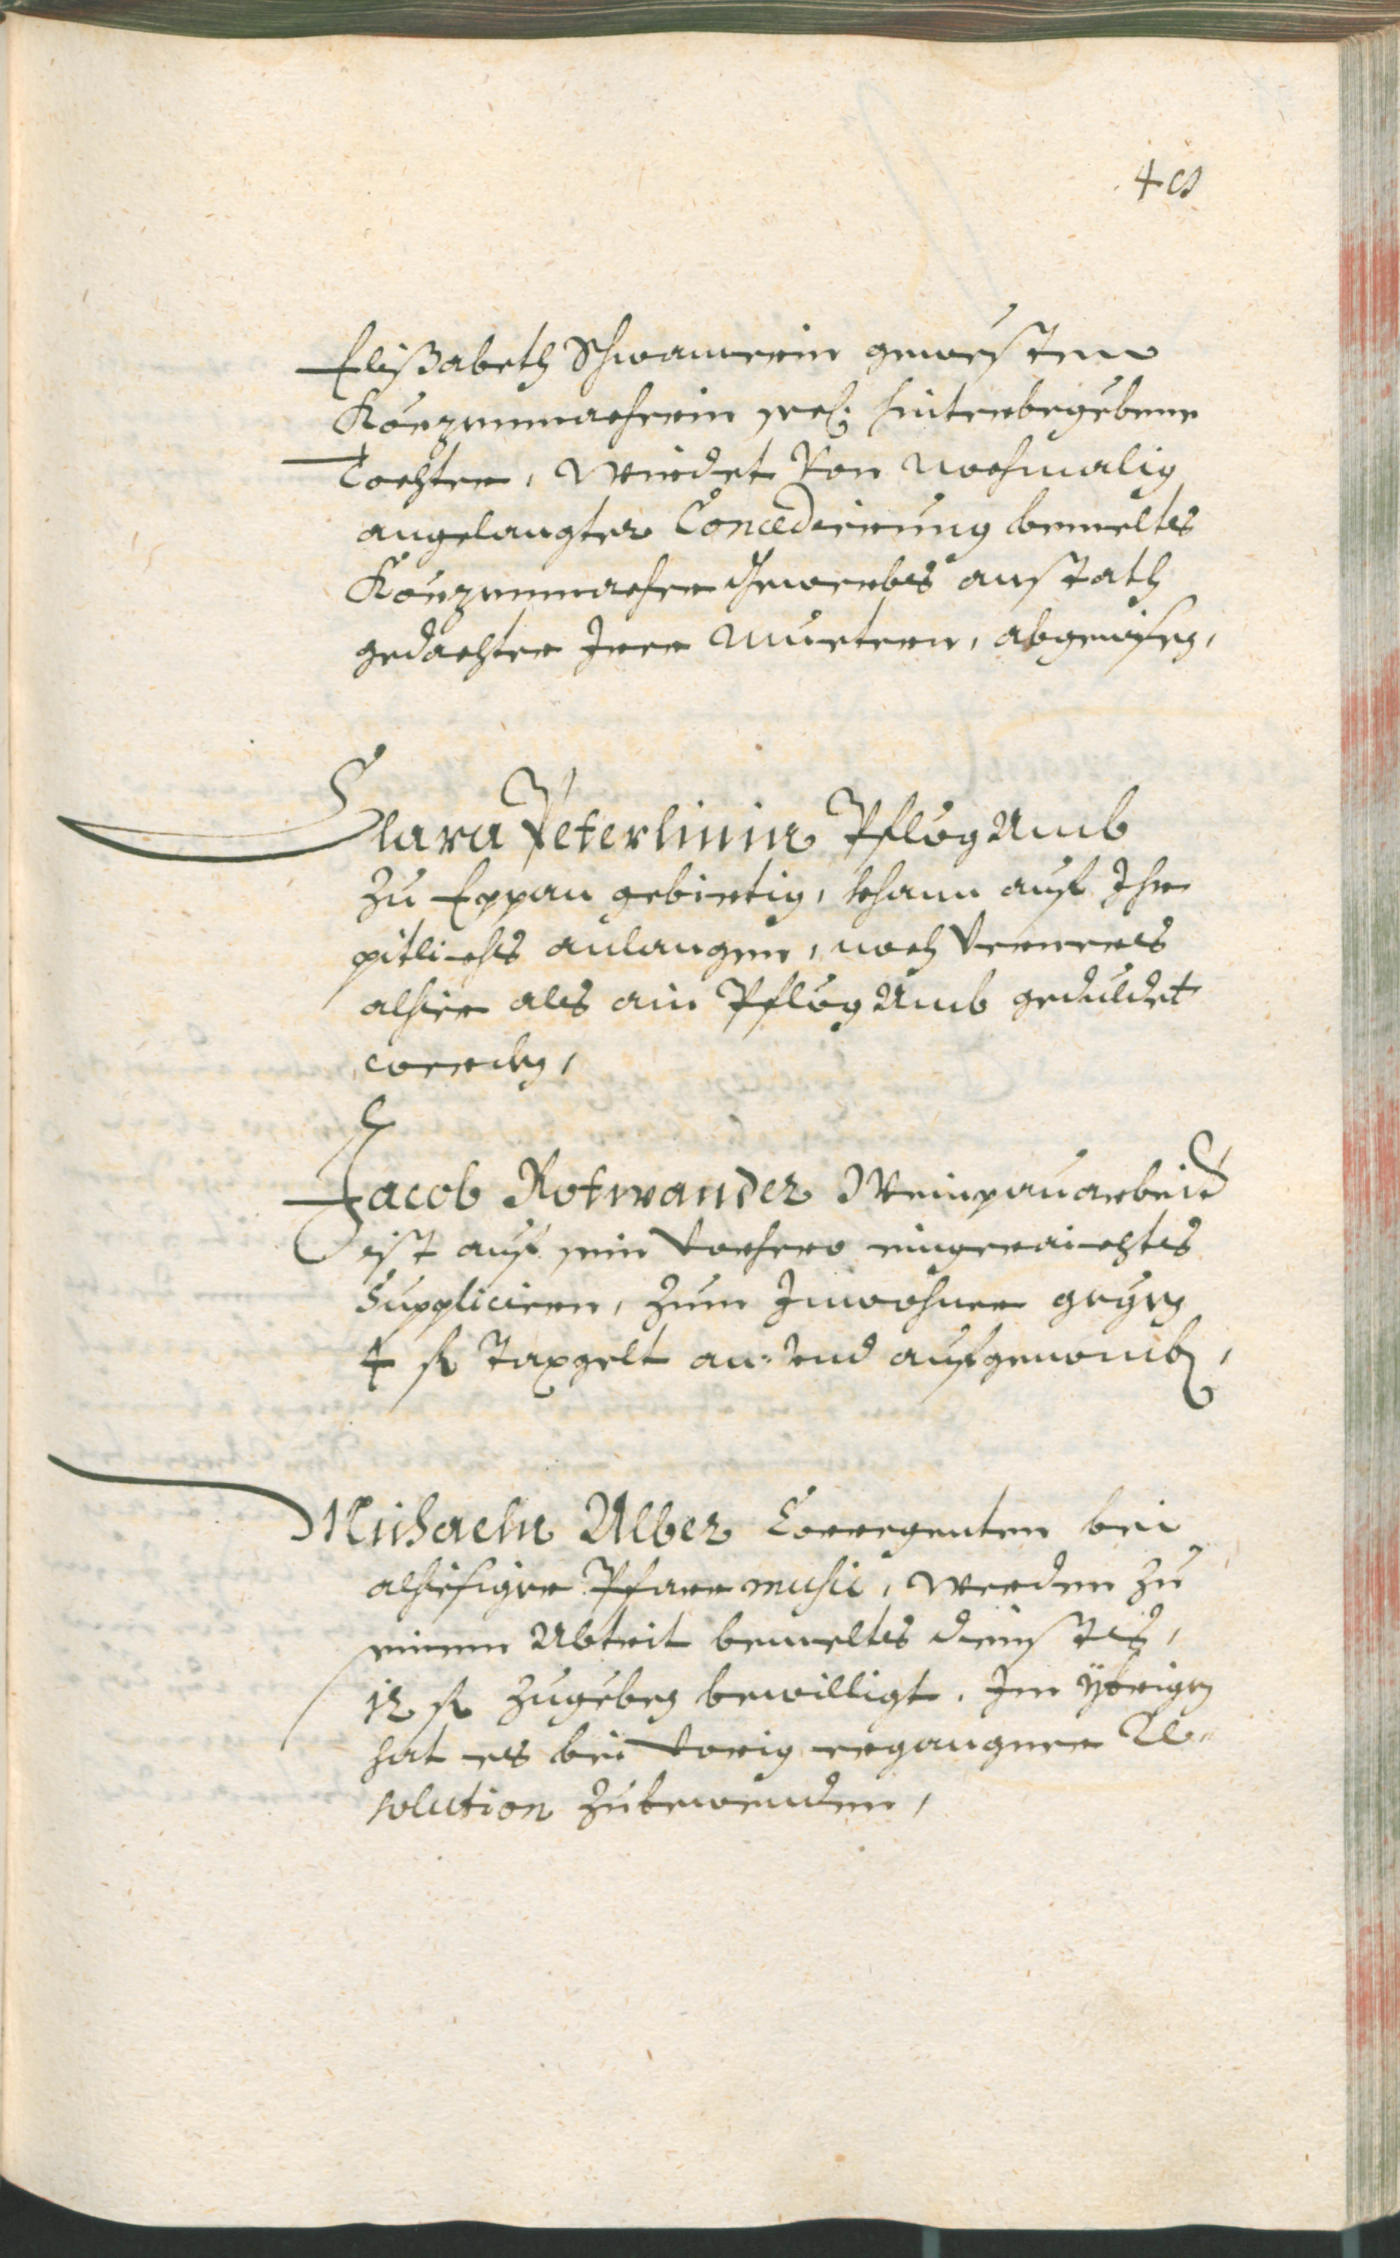 Elißabeth Schwanerin gewesten
Körzenmacherin seel: hinterbegebene
Tochter, wirdet von nochmalig
angelangter Concedierung bemeltes
Körzenmacher Gwerbs anstath
gedachter Irer Muetern, abgewisen,
Clara Peterlinin Pflög Amb
zu Eppan gebirtig, khann auf Ihr
pitliches anlangen, noch verers
alhier als ain Pflög Amb geduldet
werden,
Jacob Rotwander Weinpauarbeiter
ist auf sein vorhero eingeraichtes
Supplicieren, zum Inwohner gegen
4 fl Taxgelt an- und aufgenomben,
Michaeln Alber Corregenten bei
alhiesiger Pfarr music, werden zu
einem Abtrit bemeltes Dienstes,
12 fl zugeben bewilligt. Im ybrigen
hat es bei vorig ergangner Re-
solution zubewenden,